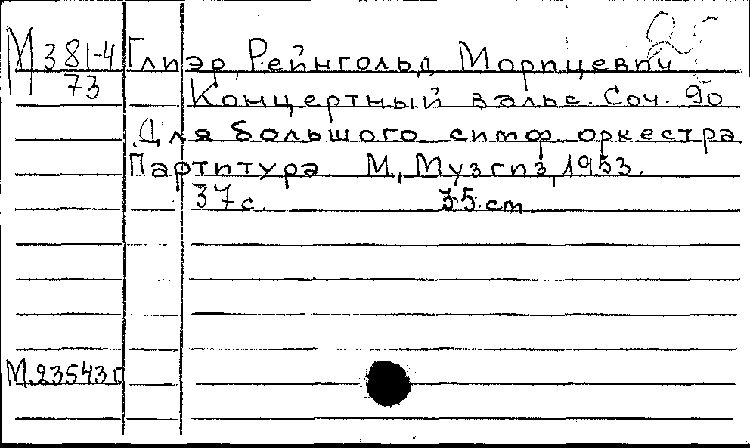 25
М 381-4 Глиэр, Рейнгольд Морицевич
73 Концертный вальс. Соч. 90
Для большого симф. оркестра
Партитура М., Музгиз, 1953.
37 с. 35 cm
М.23543г